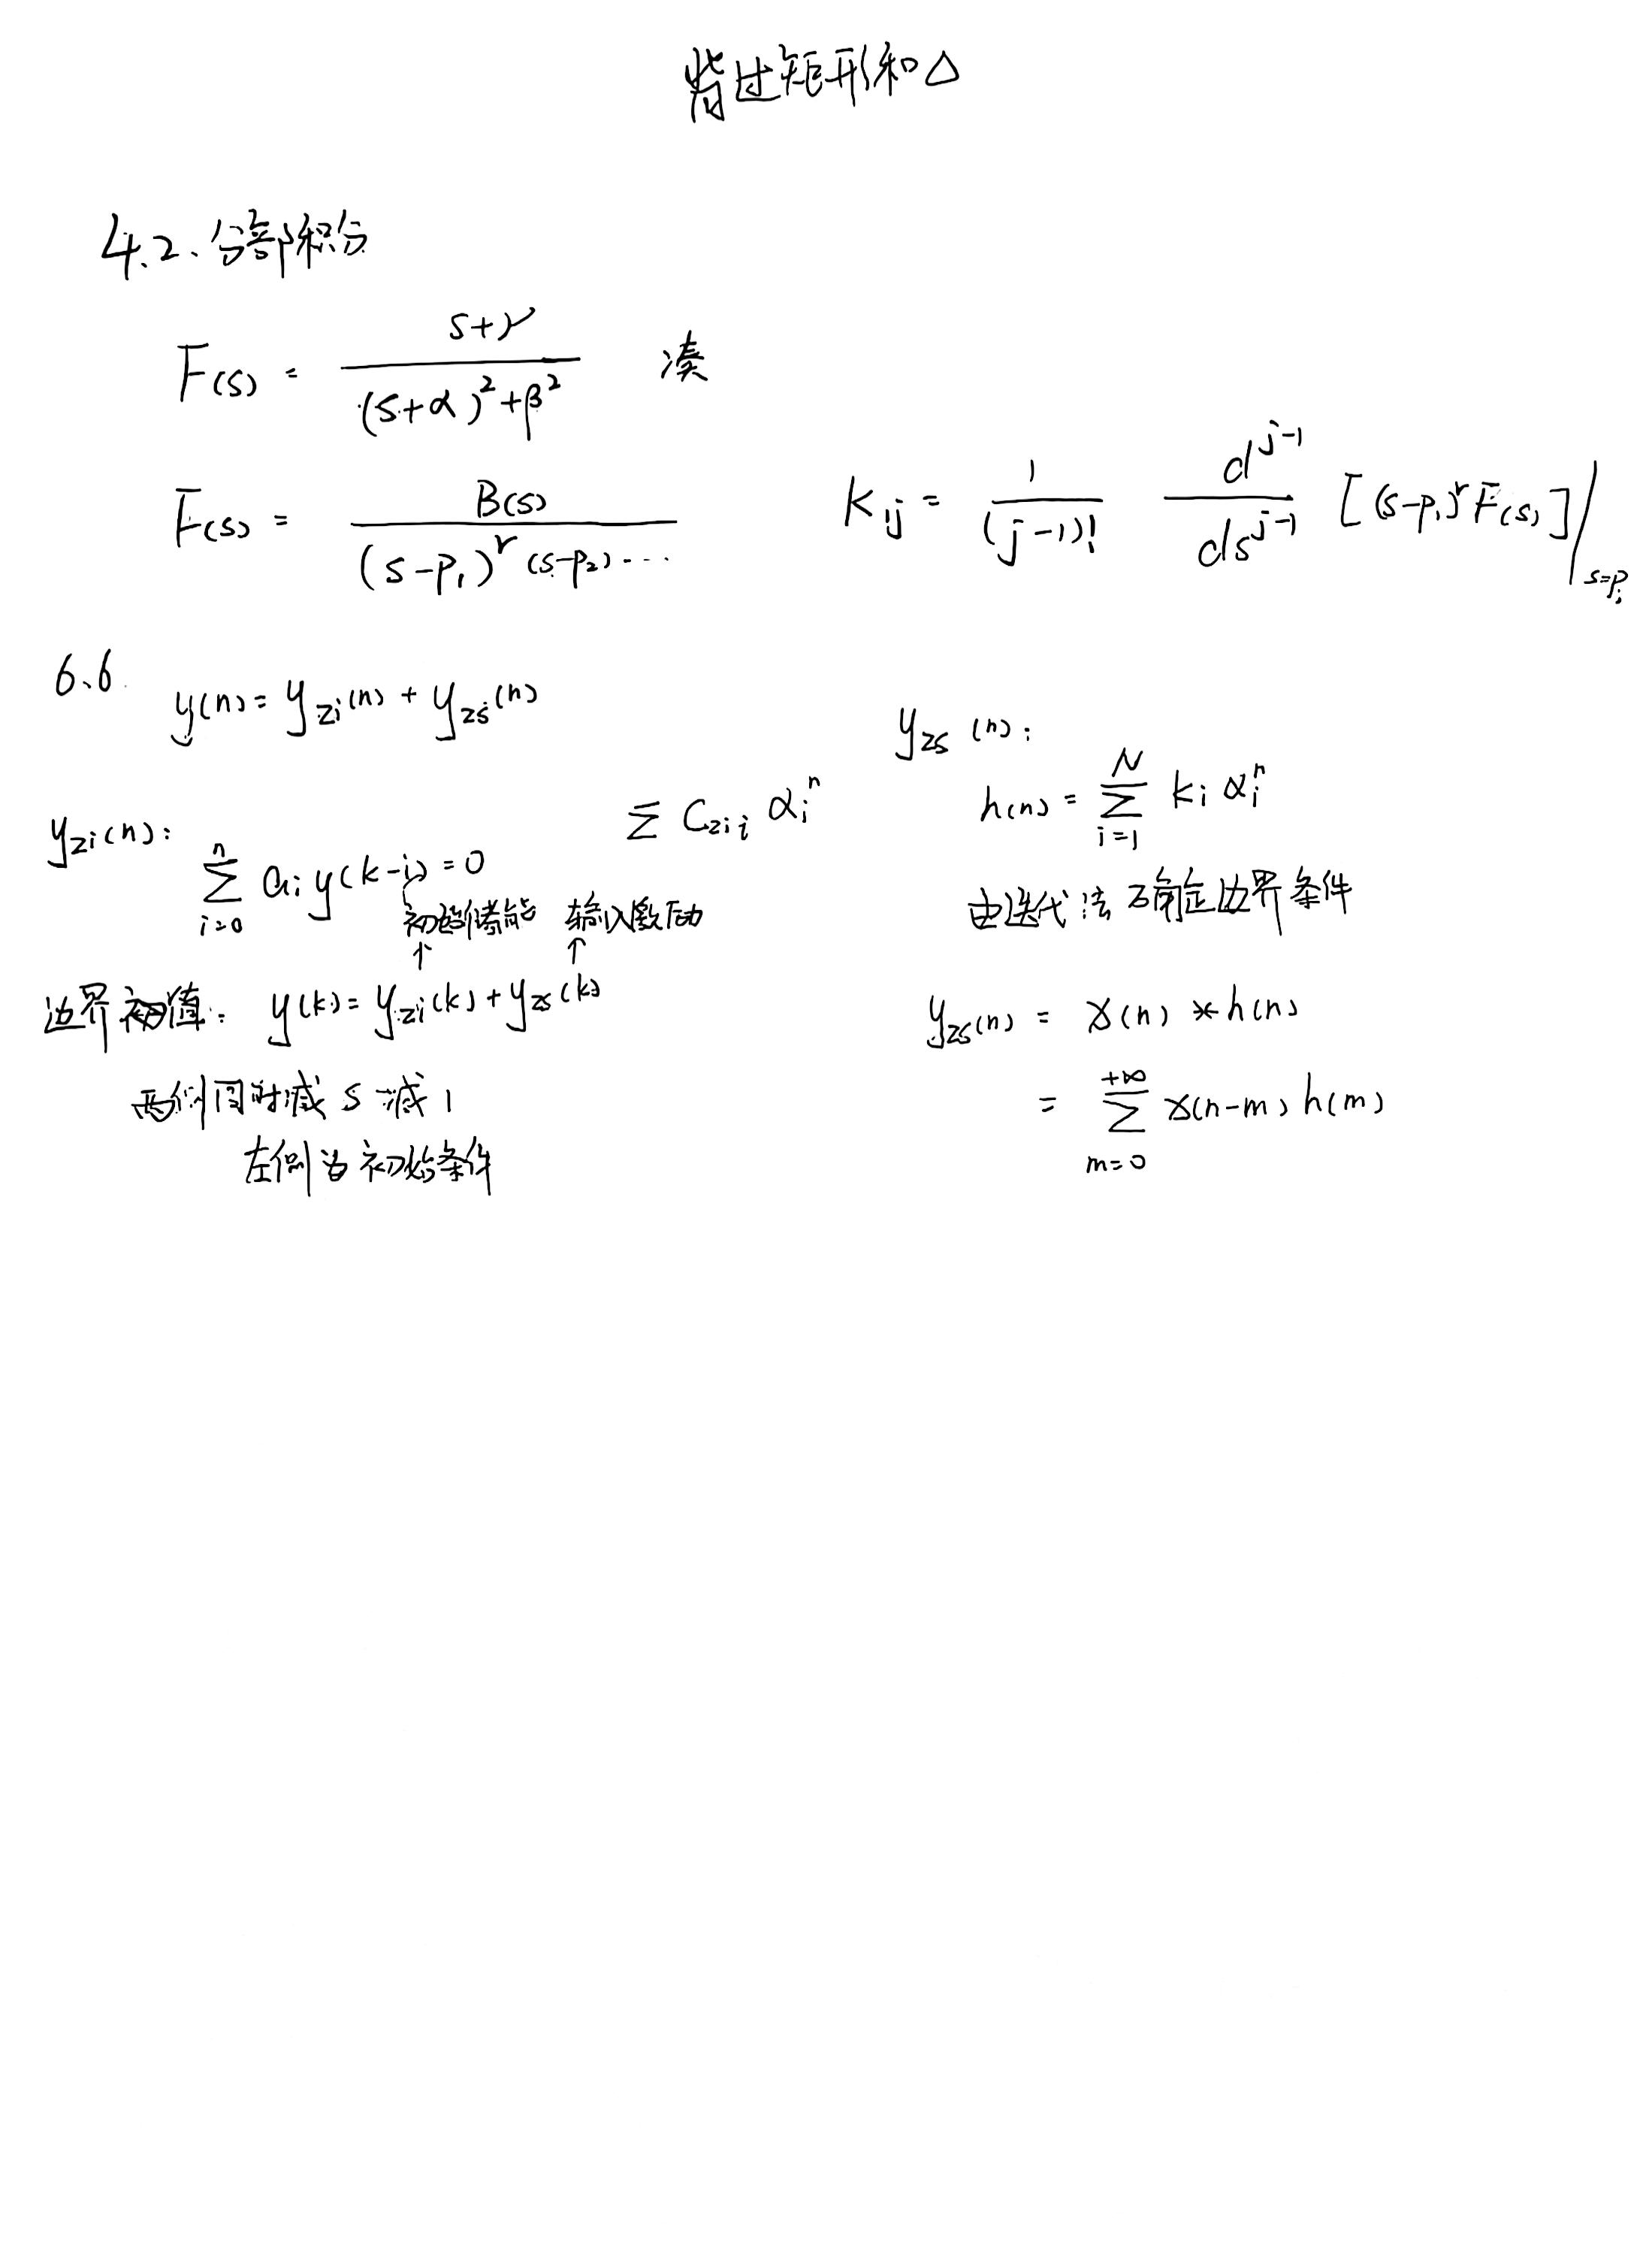 背过矩形和△
4.2、分部积分
F(s) = (s+γ) / ((s+α)²+β²) 凑
F(s) = B(s) / ((s-p₁)^r (s-p₂)⋯
K₁ⱼ = 1/(j-1)! d^(j-1)/ds^(j-1) [(s-p₁)^r F(s)] |_(s=pᵢ)
6.6
y(n) = y_zi(n) + y_zs(n)
y_zi(n):
∑_(i=0)^n aᵢ y(k-i) = 0
∑ C_zii αᵢⁿ
初始储能 输入激励
↑ ↑
边界初值: y(k) = y_zi(k) + y_zs(k)
两侧同时减 s 减 1
左侧为初始条件
y_zs(n):
h(n) = ∑_(i=1)^N kᵢ αᵢⁿ
由迭代法确定边界条件
y_zs(n) = x(n) * h(n)
= ∑_(m=0)^(+∞) x(n-m) h(m)